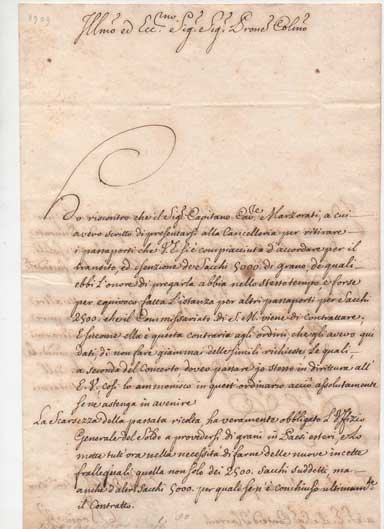 Illmo ed Eccmo Sigr Sigr Prone Colmo
Ho riscontro che il Sigr Capitano Marzorati, a cui
avevo scritto di presentarsi alla Cancelleria per ritirare
i passaporti che V. E. si è compiacciuta d'accordare per il
transito, ed esenzione de Sacchi 5000 di grano, de quali
ebbi l'onore di pregarla abbia nello stesso tempo, e forse
per equivoco fatta l'istanza per altri passaporti per Sacchi
2500. che il Commissariato di S. M. viene di contrattare.
E siccome ella è questa contraria agli ordini, che gli avevo qui
dati, di non fare giammai delle simili richieste, le quali
a seconda del Concerto devo passare io stesso in diritura all'
E. V. così lo ammonisco in quest'ordinario acciò assolutamente
se ne astenga in avenire
La Scarsezza della passata ricolta, ha veramente obbligato l'Ufizio
Generale del Soldo a provedersi di grani in Paesi esteri, e lo
mette tutt'ora nella necessità di farne delle nuove incette
fralle quali quella non solo dei 2500. Sacchi suddetti, ma
anche d'altri Sacchi 5000. per quale se n'è conchiuso ultimamte
il Contratto.